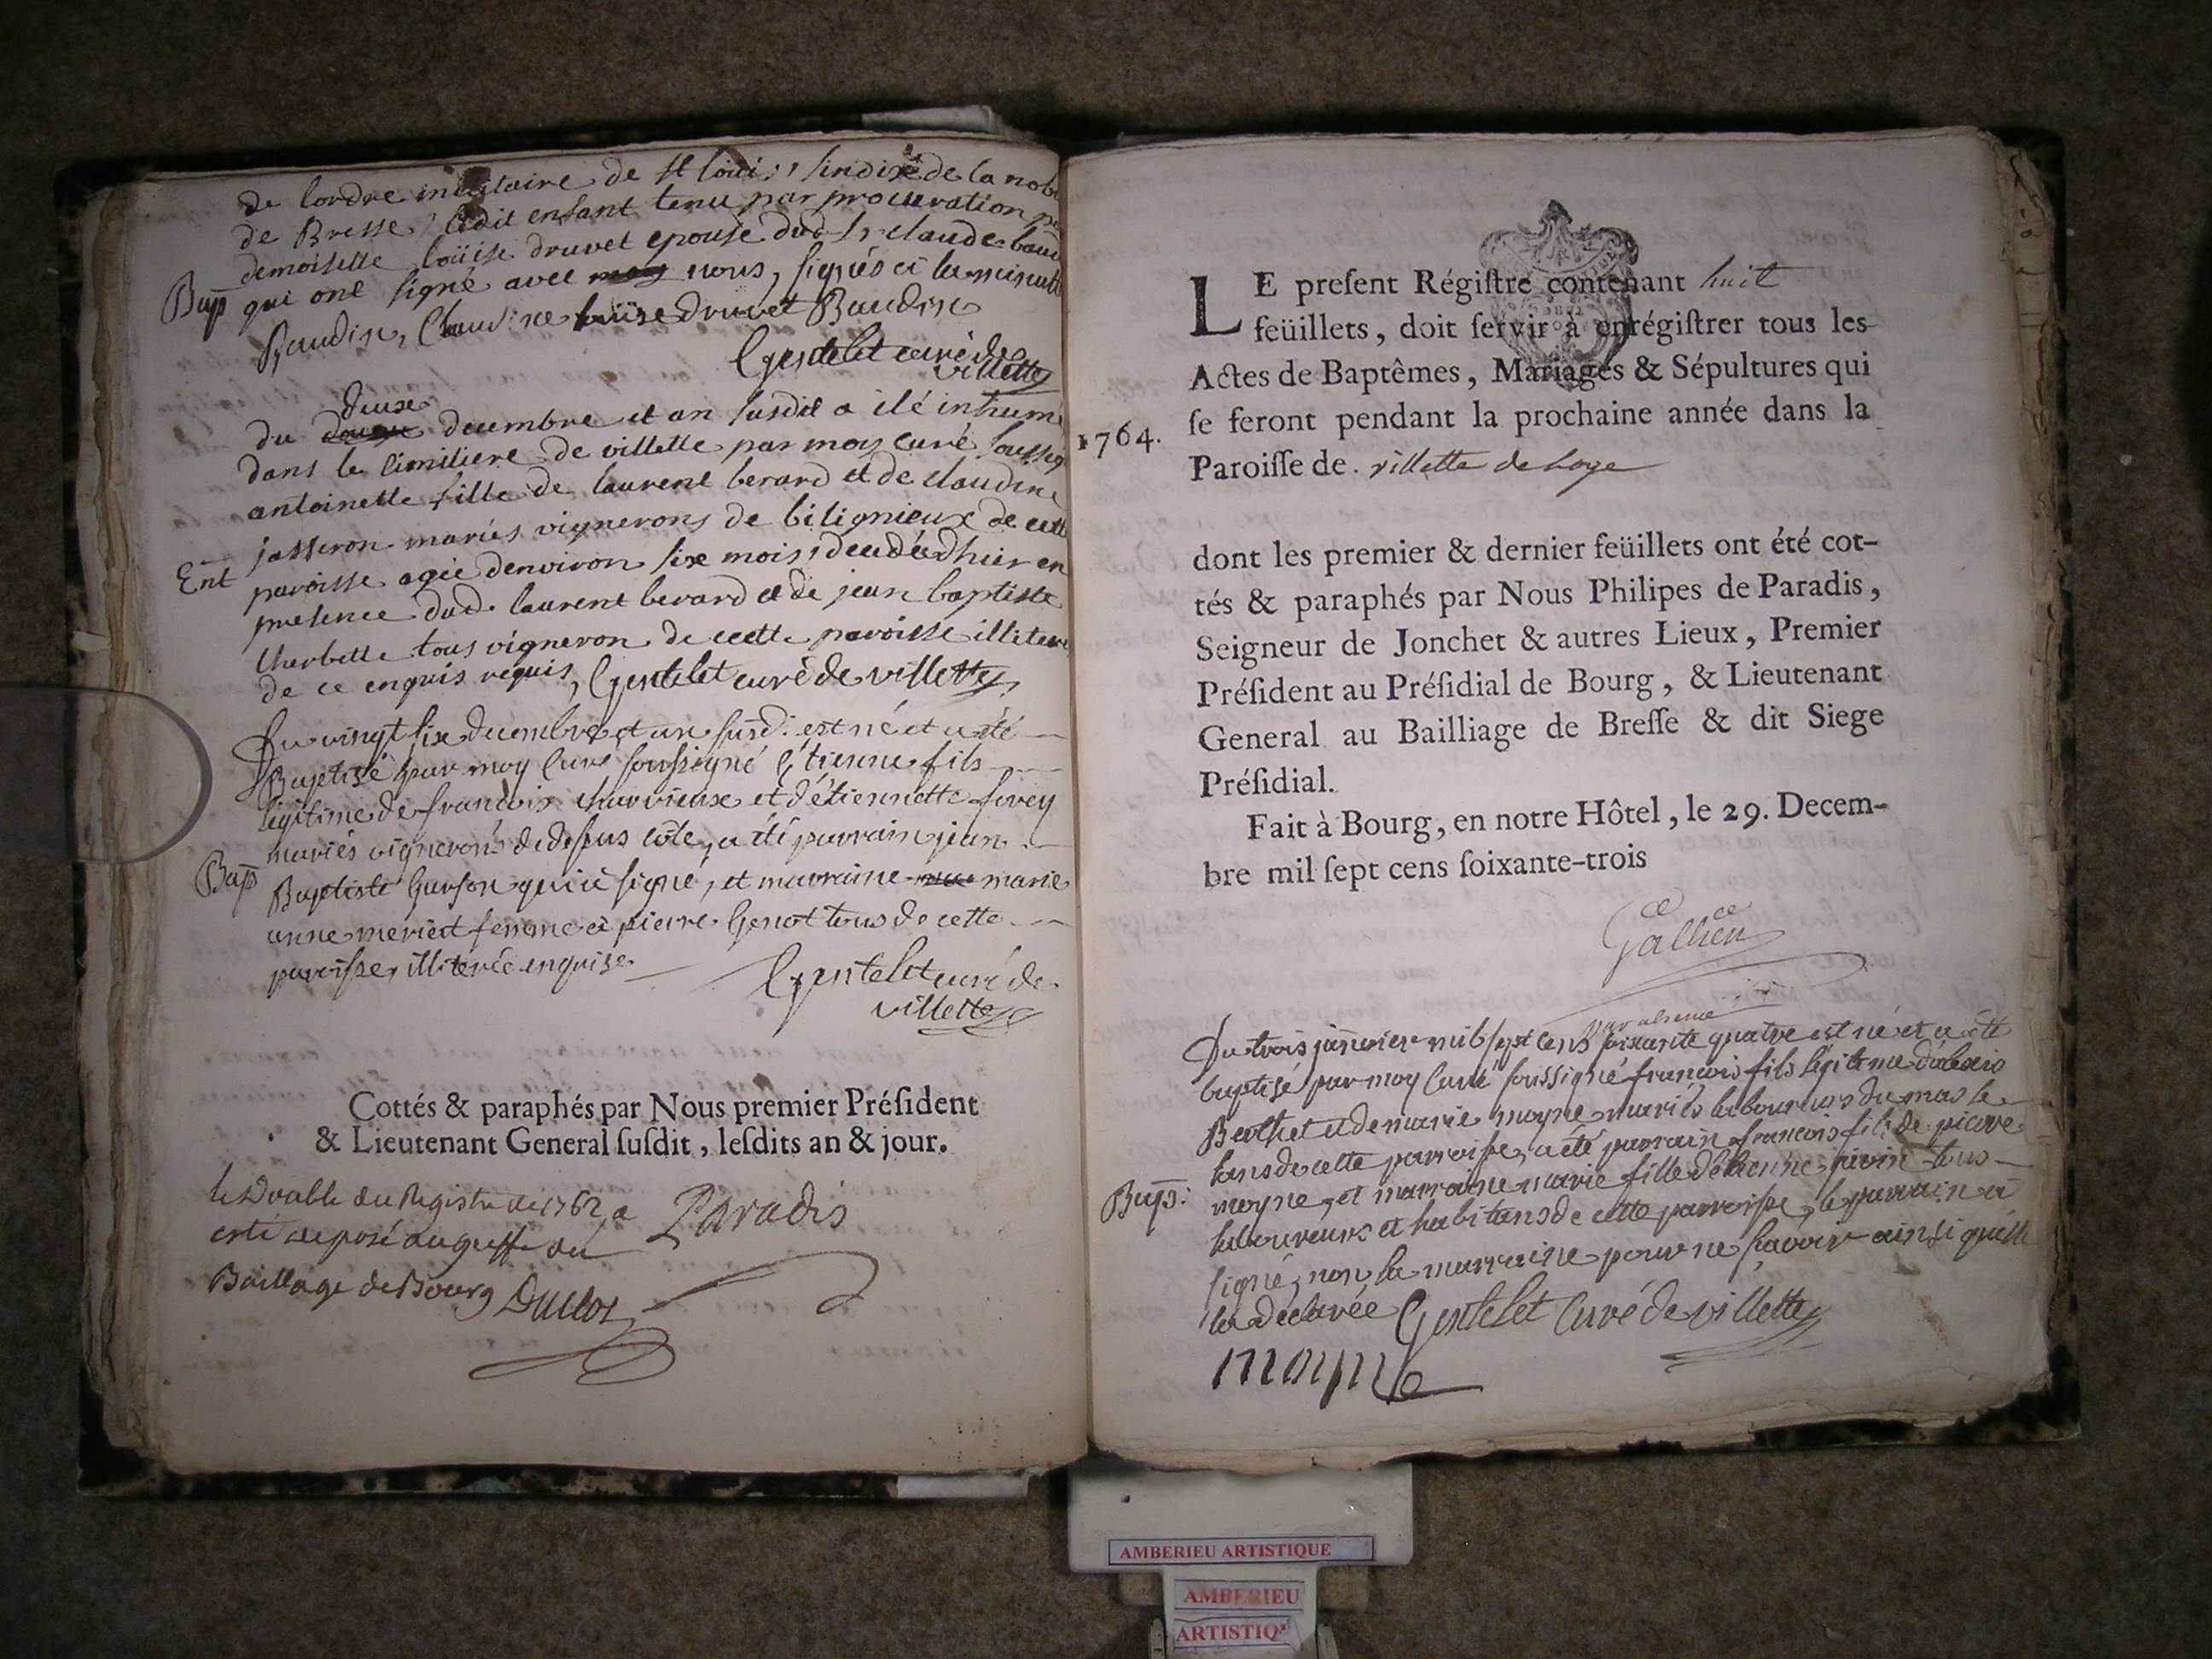 de lordre militaire de st louis, sindixe de la nob
de Bresse, ledit enfant tenu par procuration
demoiselle loüise druvet epouse dud sr claude baud
Bap qui ont signé avec moy nous, signés ci la minutte
Baudin, Claudine loüise druvet Baudin
Gentelet curé de
villette
deux
du douze decembre et an susdit a été inhumé
dans le cimitiere de villette par moy curé soussig
antoinette fille de laurent berard et de claudine
jasseron mariés vignerons de bilignieux de cette
Ent paroisse agée denviron six mois, decedée dhier en
presence dud. laurent berard et de jean baptiste
Cherbette tous vigneron de cette paroisse illiteré
de ce enquis requis, Gentelet curé de villette
Du vingt six decembre et an susd. est né et a été
Baptisé par moy Curé soussigné Étienne fils
légitime de francois charvieux et d'étiennette ferey
mariés vignerons de dessus côte, a été parrain jean
Bap Baptiste Gerson qui a signé, et marraine marie
anne meriet femme à pierre Genot tous de cette
paroisse, illiterée enquise
Gentelet curé de
villette
Cottés & paraphés par Nous premier Préſident
& Lieutenant General ſuſdit, leſdits an & jour.
le Double du Registre de 1762 a
esté deposé au greffe du
Baillage de Bourg Duclos
Paradis
LE preſent Régiſtre contenant huit
feüillets, doit ſervir à enrégiſtrer tous les
Actes de Baptêmes, Mariages & Sépultures qui
ſe feront pendant la prochaine année dans la
1764.
Paroiſſe de. villette de loye
dont les premier & dernier feüillets ont été cot-
tés & paraphés par Nous Philipes de Paradis,
Seigneur de Jonchet & autres Lieux, Premier
Préſident au Préſidial de Bourg, & Lieutenant
General au Bailliage de Breſſe & dit Siege
Préſidial.
Fait à Bourg, en notre Hôtel, le 29. Decem-
bre mil ſept cens ſoixante-trois
Gallien
Du trois janvier mil sept cens soixante quatre est né et a été
baptisé par moy Curé soussigné francois fils légitime d'alexis
Berthet et de marie moyne mariés laboureurs du mas
de cette parroisse, a été parrain francois fils de pierre
Bap: moyne, et marraine marie fille d'étienne tous
laboureurs et habitans de cette parroisse, le parrain a
signé, non la marraine pour ne sçavoir ainsi qu'elle
la déclarée Gentelet Curé de villette
moyne
AMBERIEU ARTISTIQUE
AMBERIEU
ARTISTIQ